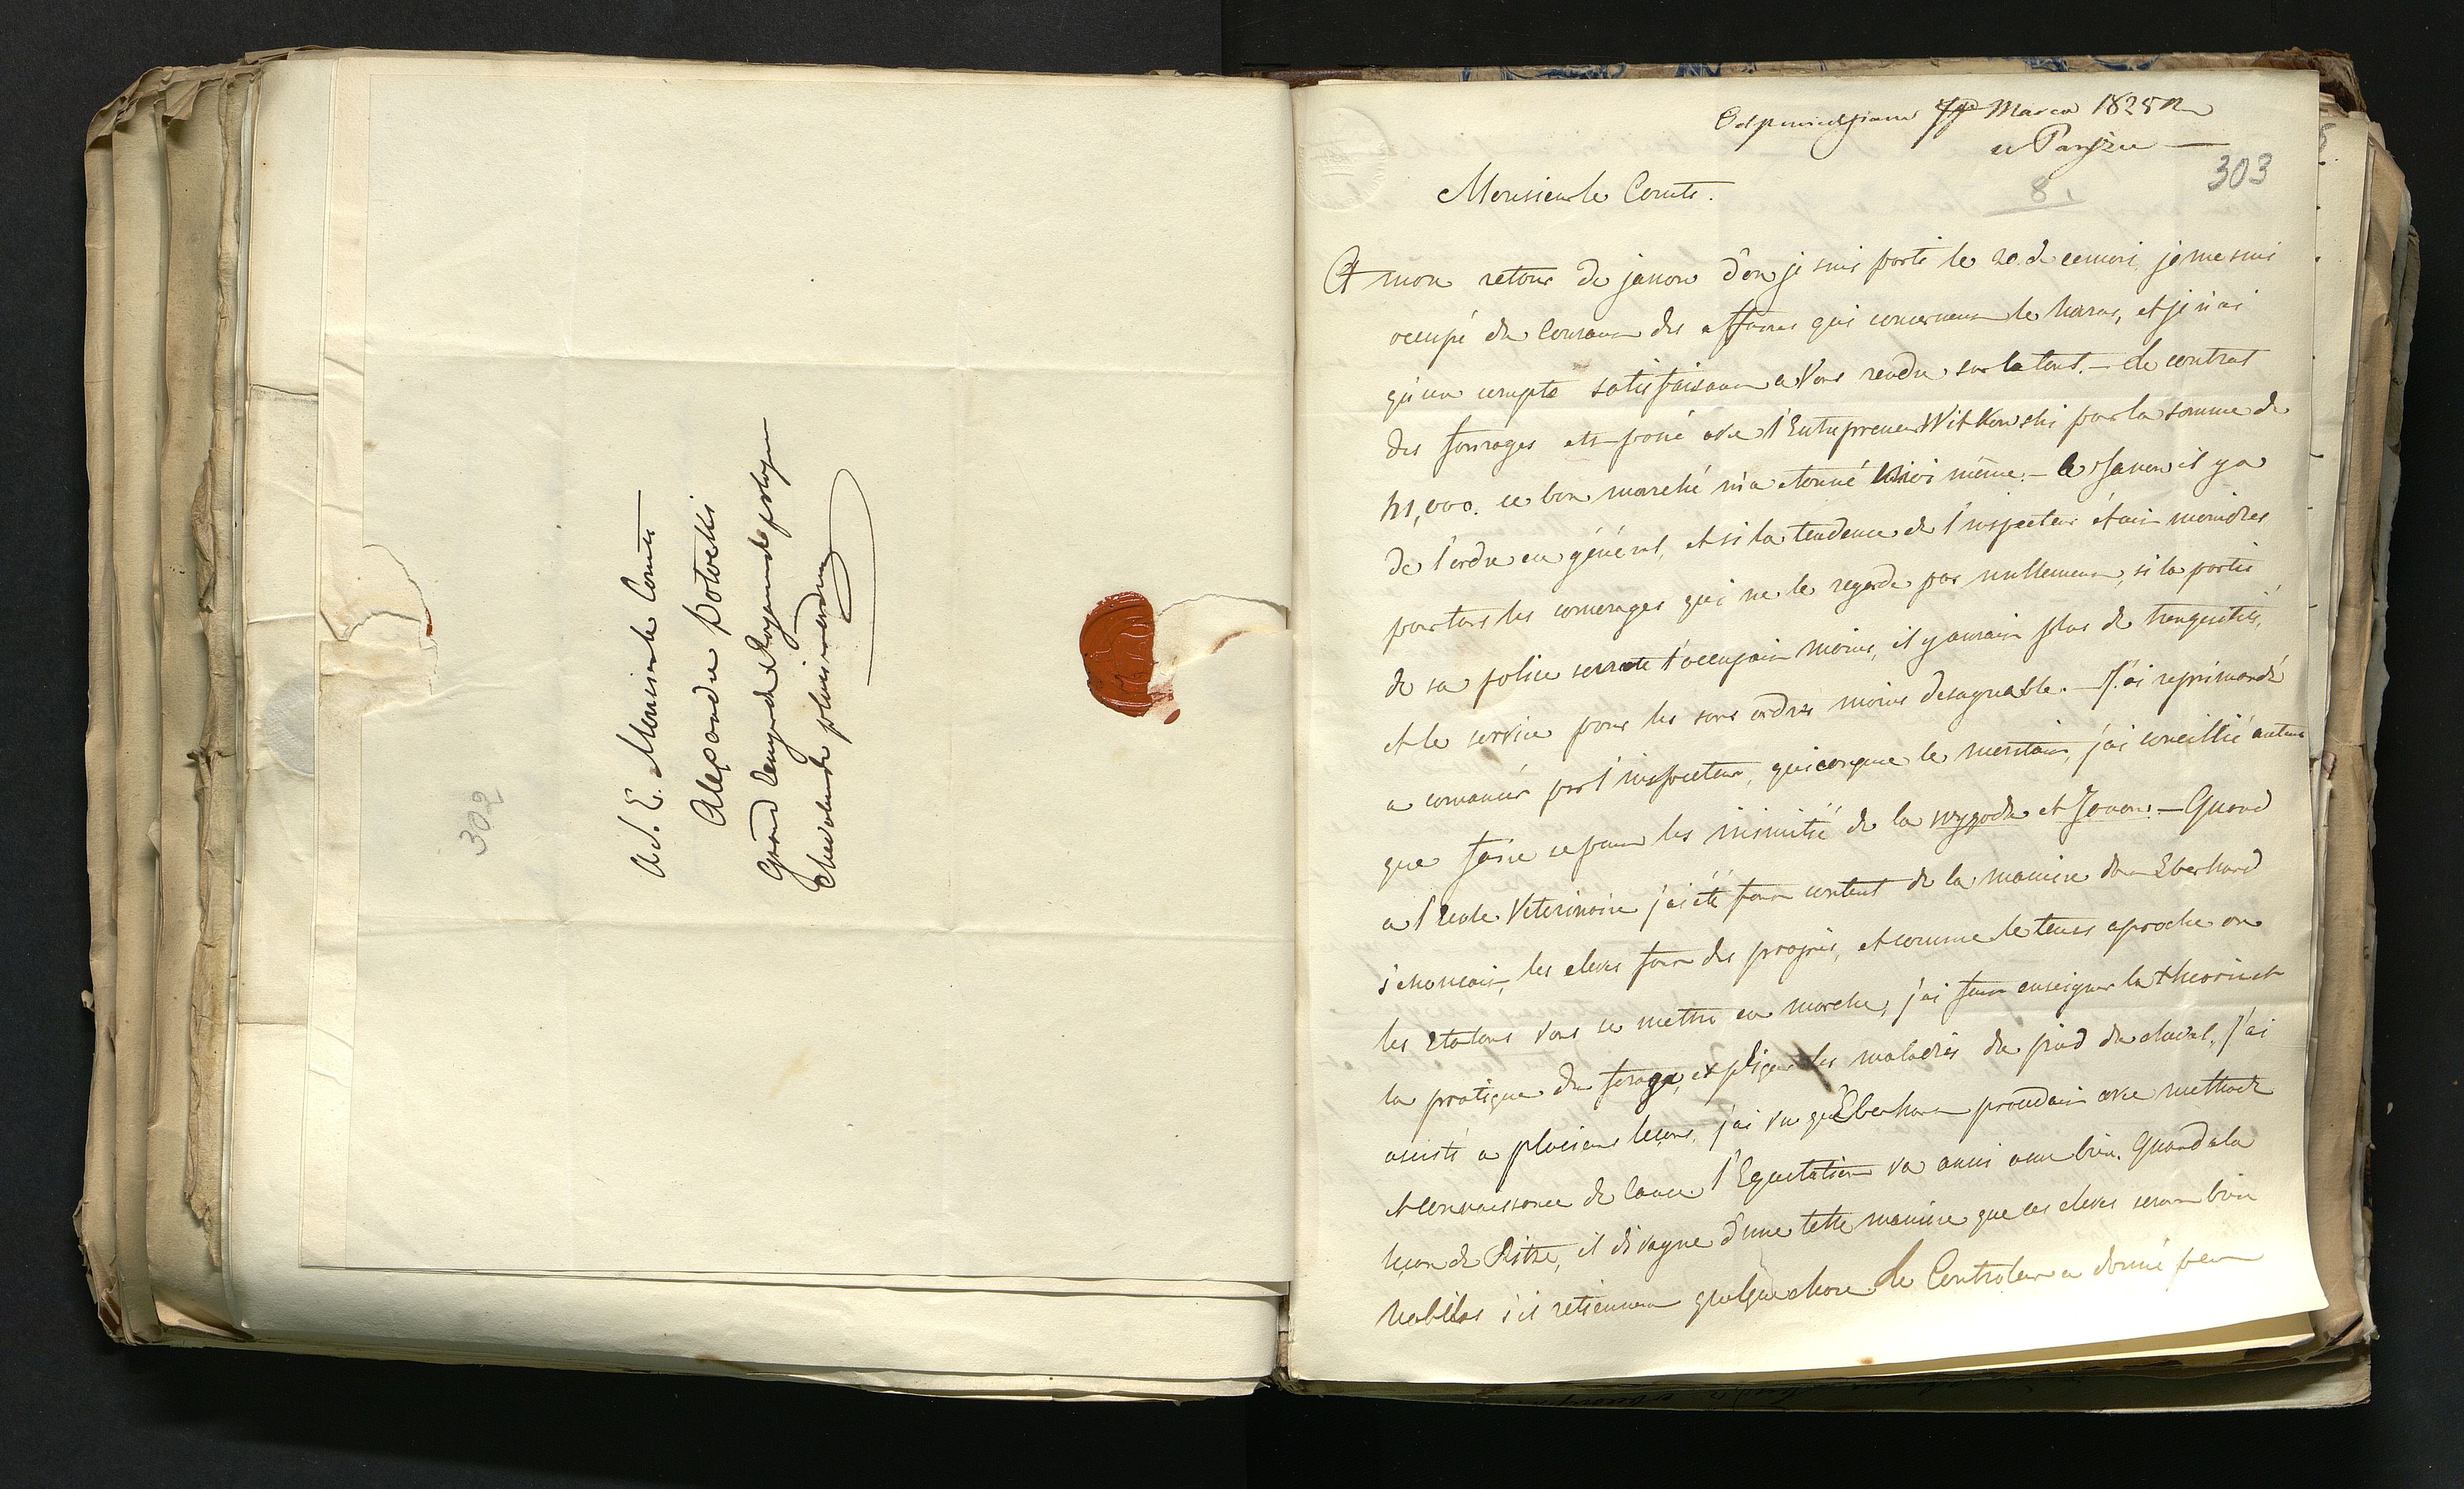 302
A S. E. Monsieur le Comte
Alexandre Potocki
Grand Ecuyer du Royaume de pologne
Chevalier de plusieurs ordres
Odpowiedziane Marca 1828 r
w Paryżu
303
8
Monsieur le Comte.
A mon retour de janow d'ou je suis parti le 20. de ce mois, je me suis
occupé du courant des affaires qui concernent le haras, et je n'ai
qu'un compte satisfaisant a Vous rendre sur le tout. – Le contrat
des fourages est passé avec l'Entrepreneur Witkowski pour la somme de
41,000. ce bon marché m'a etonné moi même. – a Janow il y a
de l'ordre en général, et si la tendence de l'inspecteur étoit moindres
pour tous les comerages qui ne le regarde pas nullement, si la partie
de sa police secrete l'occupait moins, il y aurait plus de tranquilité,
et le service pour les sous ordres moins desagreable. – J'ai reprimandé
a comencér par l'inspecteur, quiconque le meritait, j'ai conseillié autant
que faire se peut les inimitié de la wygoda et Janow. – Quand
a l'Ecole Véterinaire j'ai été fort content de la maniere dont Eberhard
s'enonçait, les eleves font des progrès, et comme le tems aproche ou
les Etalons vont se mettre en marche, j'ai fait enseigner la théorie et
la pratique du ferage, expliquer les maladies du pied du cheval, j'ai
assisté a plusieurs leçons, j'ai vu qu'Eberhard procedait avec methode
et connaissance de cause. l'Equitation va aussi assez bien. Quand a la
leçon de Ditze, il divague d'une telle maniere que ces eleves seront bien
habiles s'il retiennent quelque chose. Le Controleur a donné peu